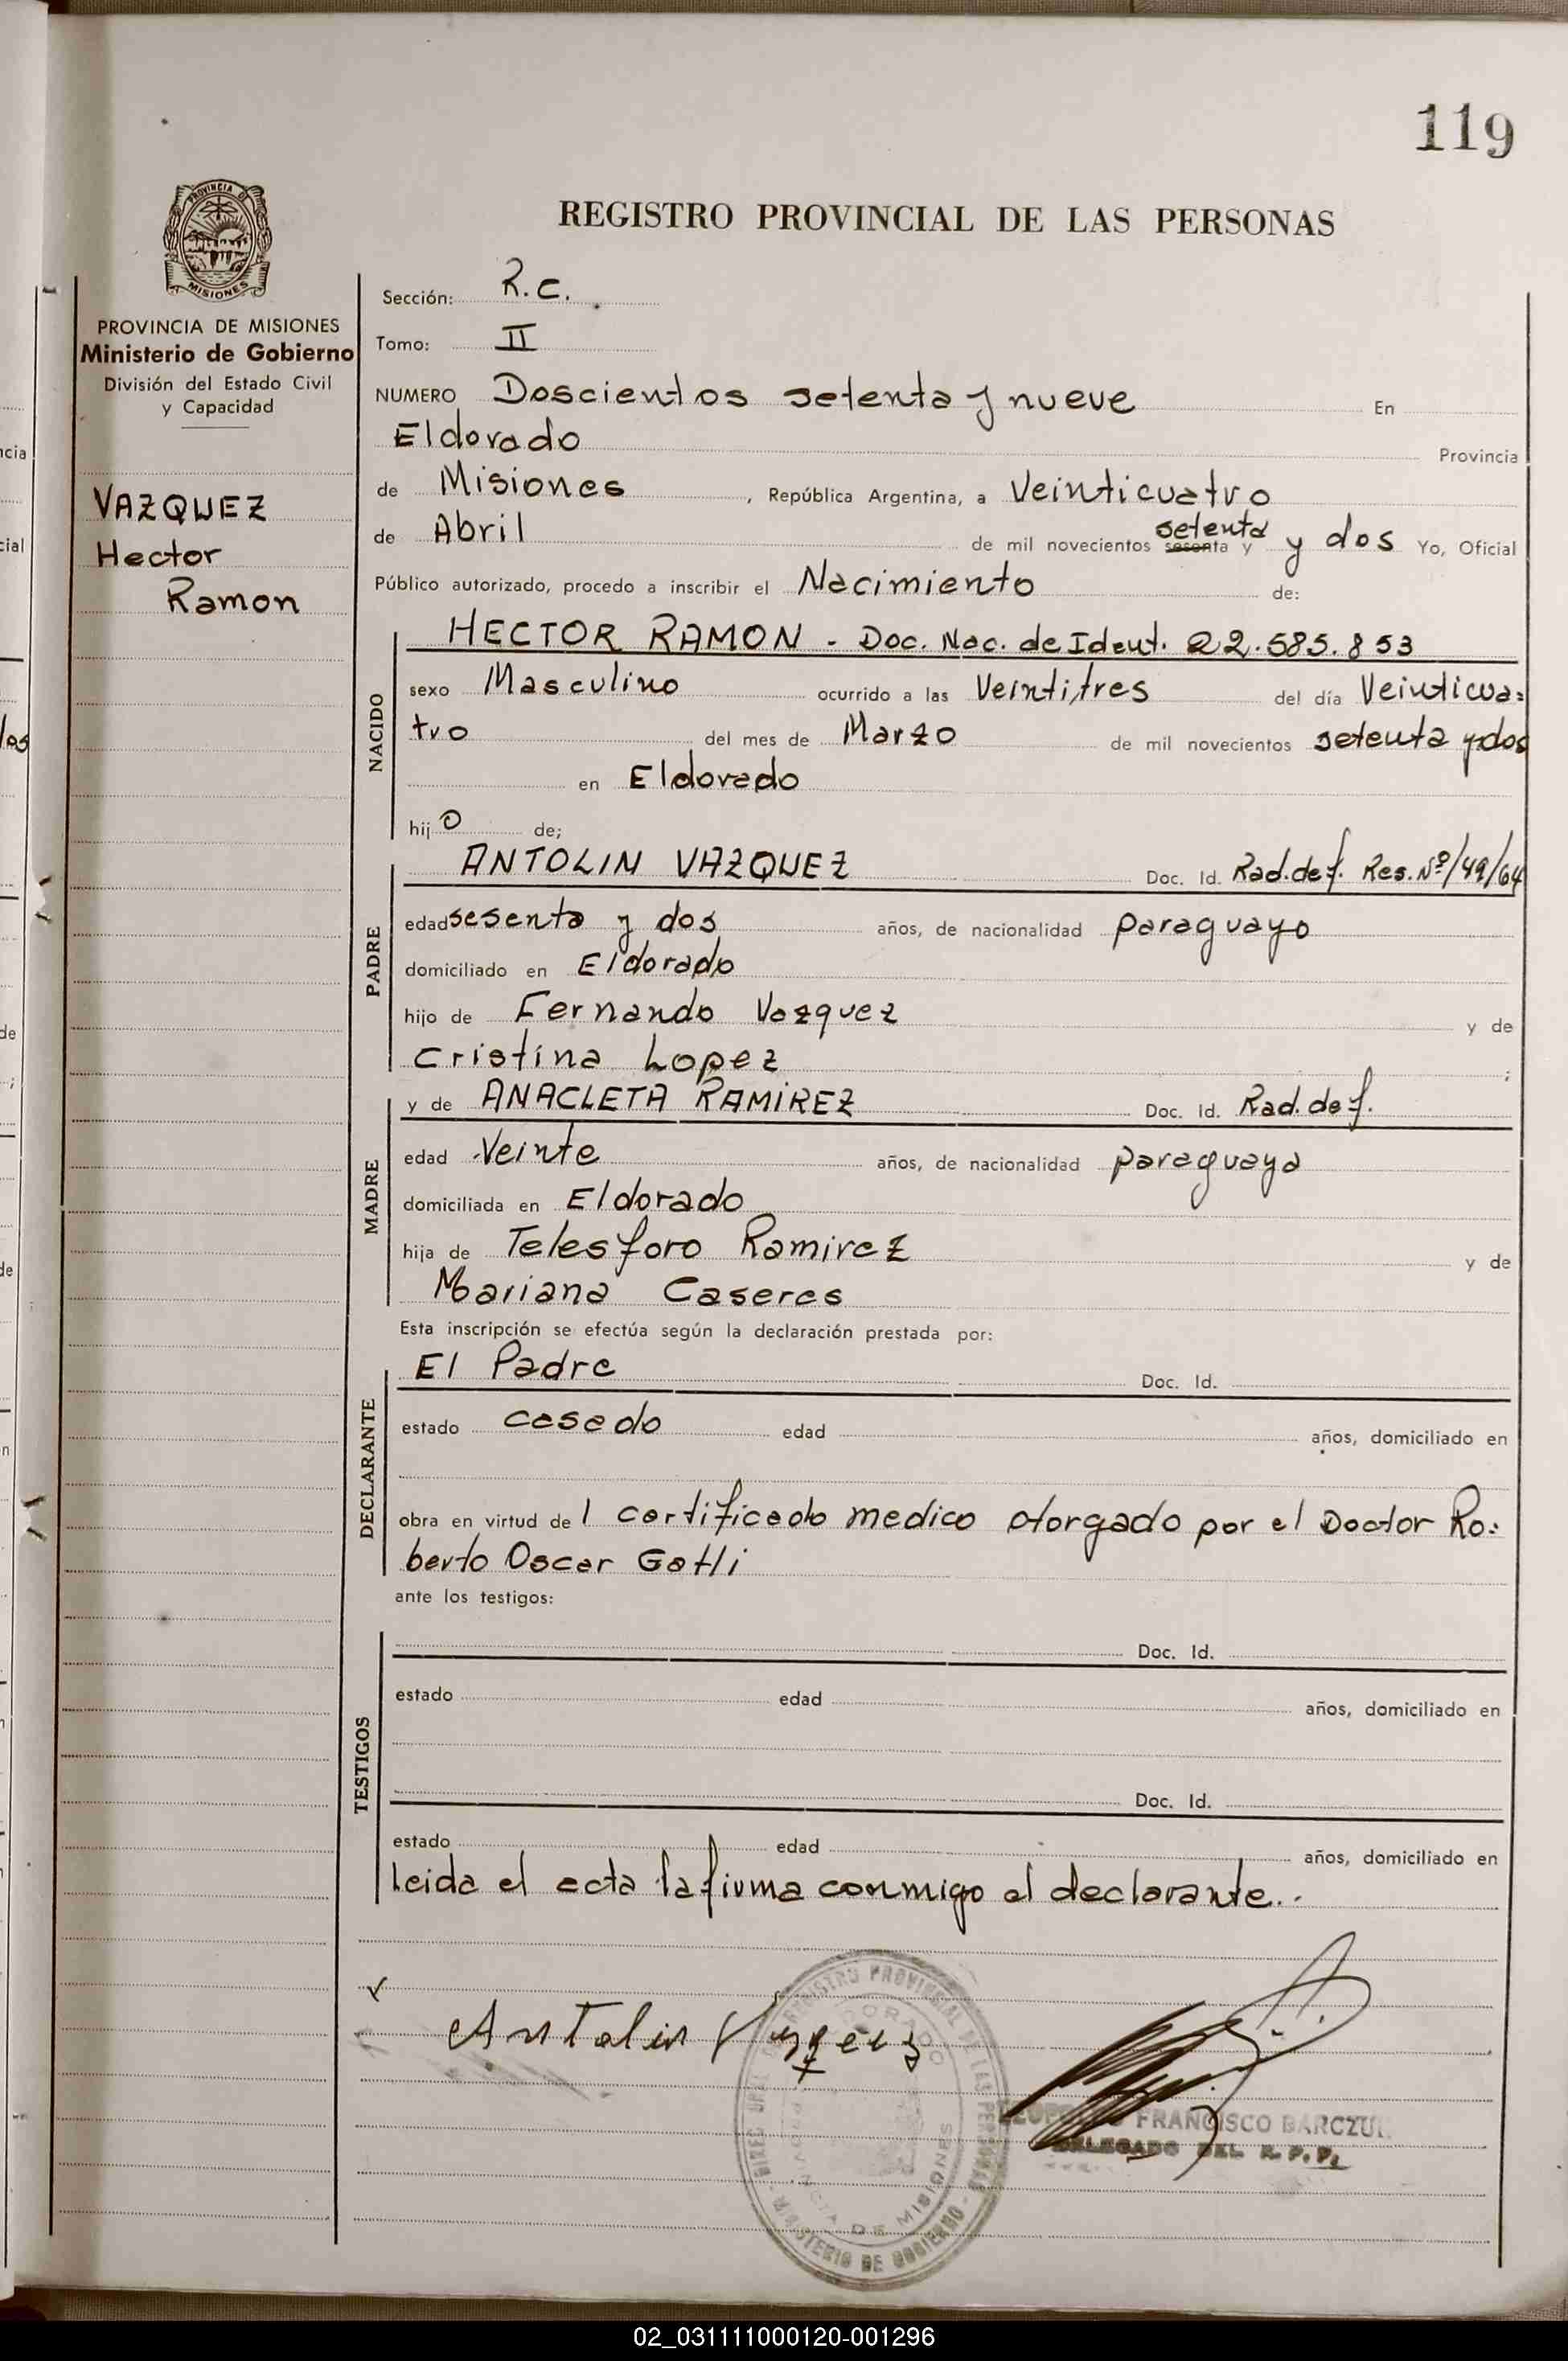 119
PROVINCIA DE
MISIONES
REGISTRO PROVINCIAL DE LAS PERSONAS
PROVINCIA DE MISIONES
Ministerio de Gobierno
División del Estado Civil
y Capacidad
VAZQUEZ
Hector
Ramon
Sección: R.C.
Tomo: II
NUMERO Doscientos setenta y nueve En
Eldorado Provincia
de Misiones , República Argentina, a Veinticuatro
de Abril de mil novecientos sesenta y setenta y dos Yo, Oficial
Público autorizado, procedo a inscribir el Nacimiento de:
NACIDO
HECTOR RAMON - Doc. Nac. de Ident. 22.585.853
sexo Masculino ocurrido a las Veintitres del día Veinticua=
tro del mes de Marzo de mil novecientos setenta y dos
en Eldorado
hijo de;
PADRE
ANTOLIN VAZQUEZ Doc. Id. Rad. def. Res. Nº/49/64
edad sesenta y dos años, de nacionalidad paraguayo
domiciliado en Eldorado
hijo de Fernando Vazquez y de
Cristina Lopez ;
MADRE
y de ANACLETA RAMIREZ Doc. Id. Rad. def.
edad Veinte años, de nacionalidad paraguaya
domiciliada en Eldorado
hija de Telesforo Ramirez y de
Mariana Caseres
Esta inscripción se efectúa según la declaración prestada por:
DECLARANTE
El Padre Doc. Id.
estado casado edad años, domiciliado en
obra en virtud de l certificado medico otorgado por el Doctor Ro=
berto Oscar Gatti
ante los testigos:
TESTIGOS
Doc. Id.
estado edad años, domiciliado en
Doc. Id.
estado edad años, domiciliado en
Leida el acta la firma conmigo el declarante..
Antolin
REGISTRO PROVINCIAL DE LAS PERSONAS
MINISTERIO DE GOBIERNO
ELDORADO
PROVINCIA DE MISIONES
FRANCISCO
DELEGADO DEL R.P.P.
02_031111000120-001296